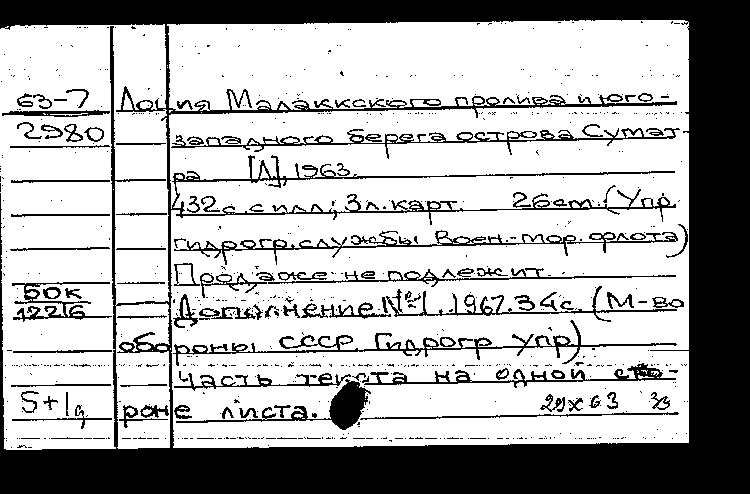 63-7 Лоция Малаккского пролива и юго-
2980 западного берега острова Сумат-
ра [Л], 1963.
432с. с илл; 3л. карт. 26см. (Упр.
гидрогр. службы Воен.-мор. флота)
Продаже не подлежит.
БОК
12216 Дополнение №1. 1967. 34с. (М-во
обороны СССР. Гидрогр упр)
Часть текста на одной сто-
5+1д роне листа. 29 х 63